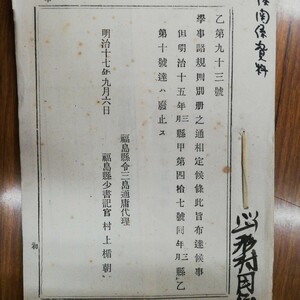 乙第九十三號
學事諮規則別册之通相定候條此旨布達候事
但明治十五年三月縣甲第四拾七號同年三月縣乙
第十號達ハ廢止ス
明治十七年九月六日
福島縣令三島通庸代理
福島縣少書記官 村上楯朝
関係資料